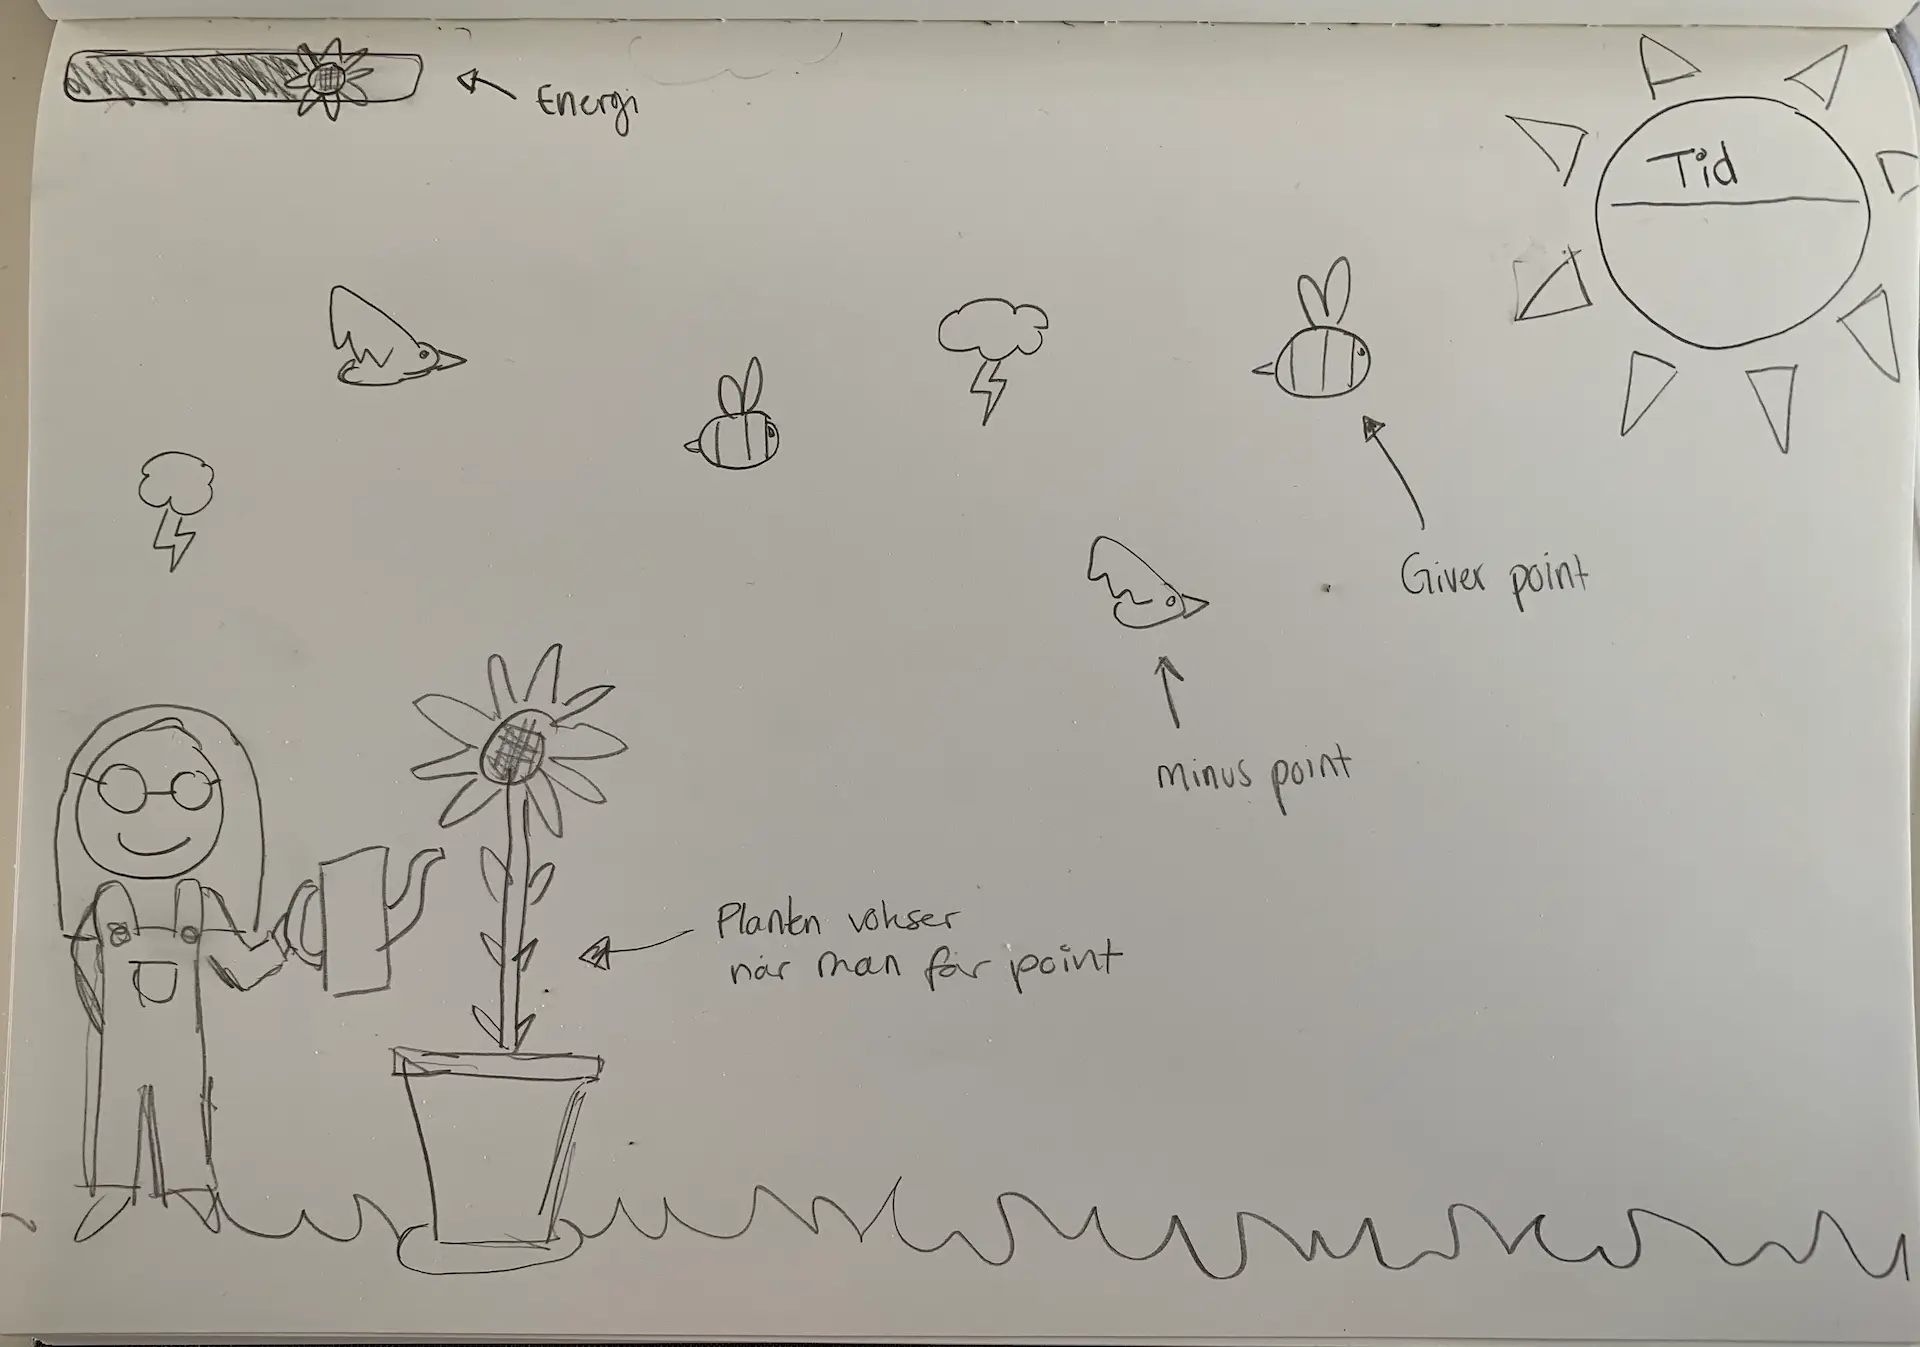 Energi
Tid
Giver point
minus point
Planten vokser
når man får point